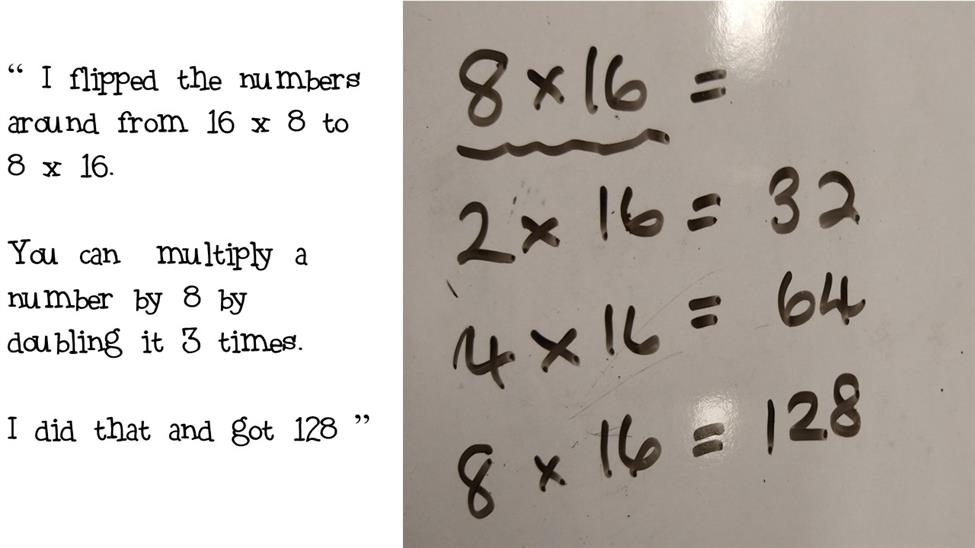 “ I flipped the numbers
around from 16 x 8 to
8 x 16.
You can multiply a
number by 8 by
doubling it 3 times.
I did that and got 128 ”
8 × 16 =
2 × 16 = 32
4 × 16 = 64
8 × 16 = 128